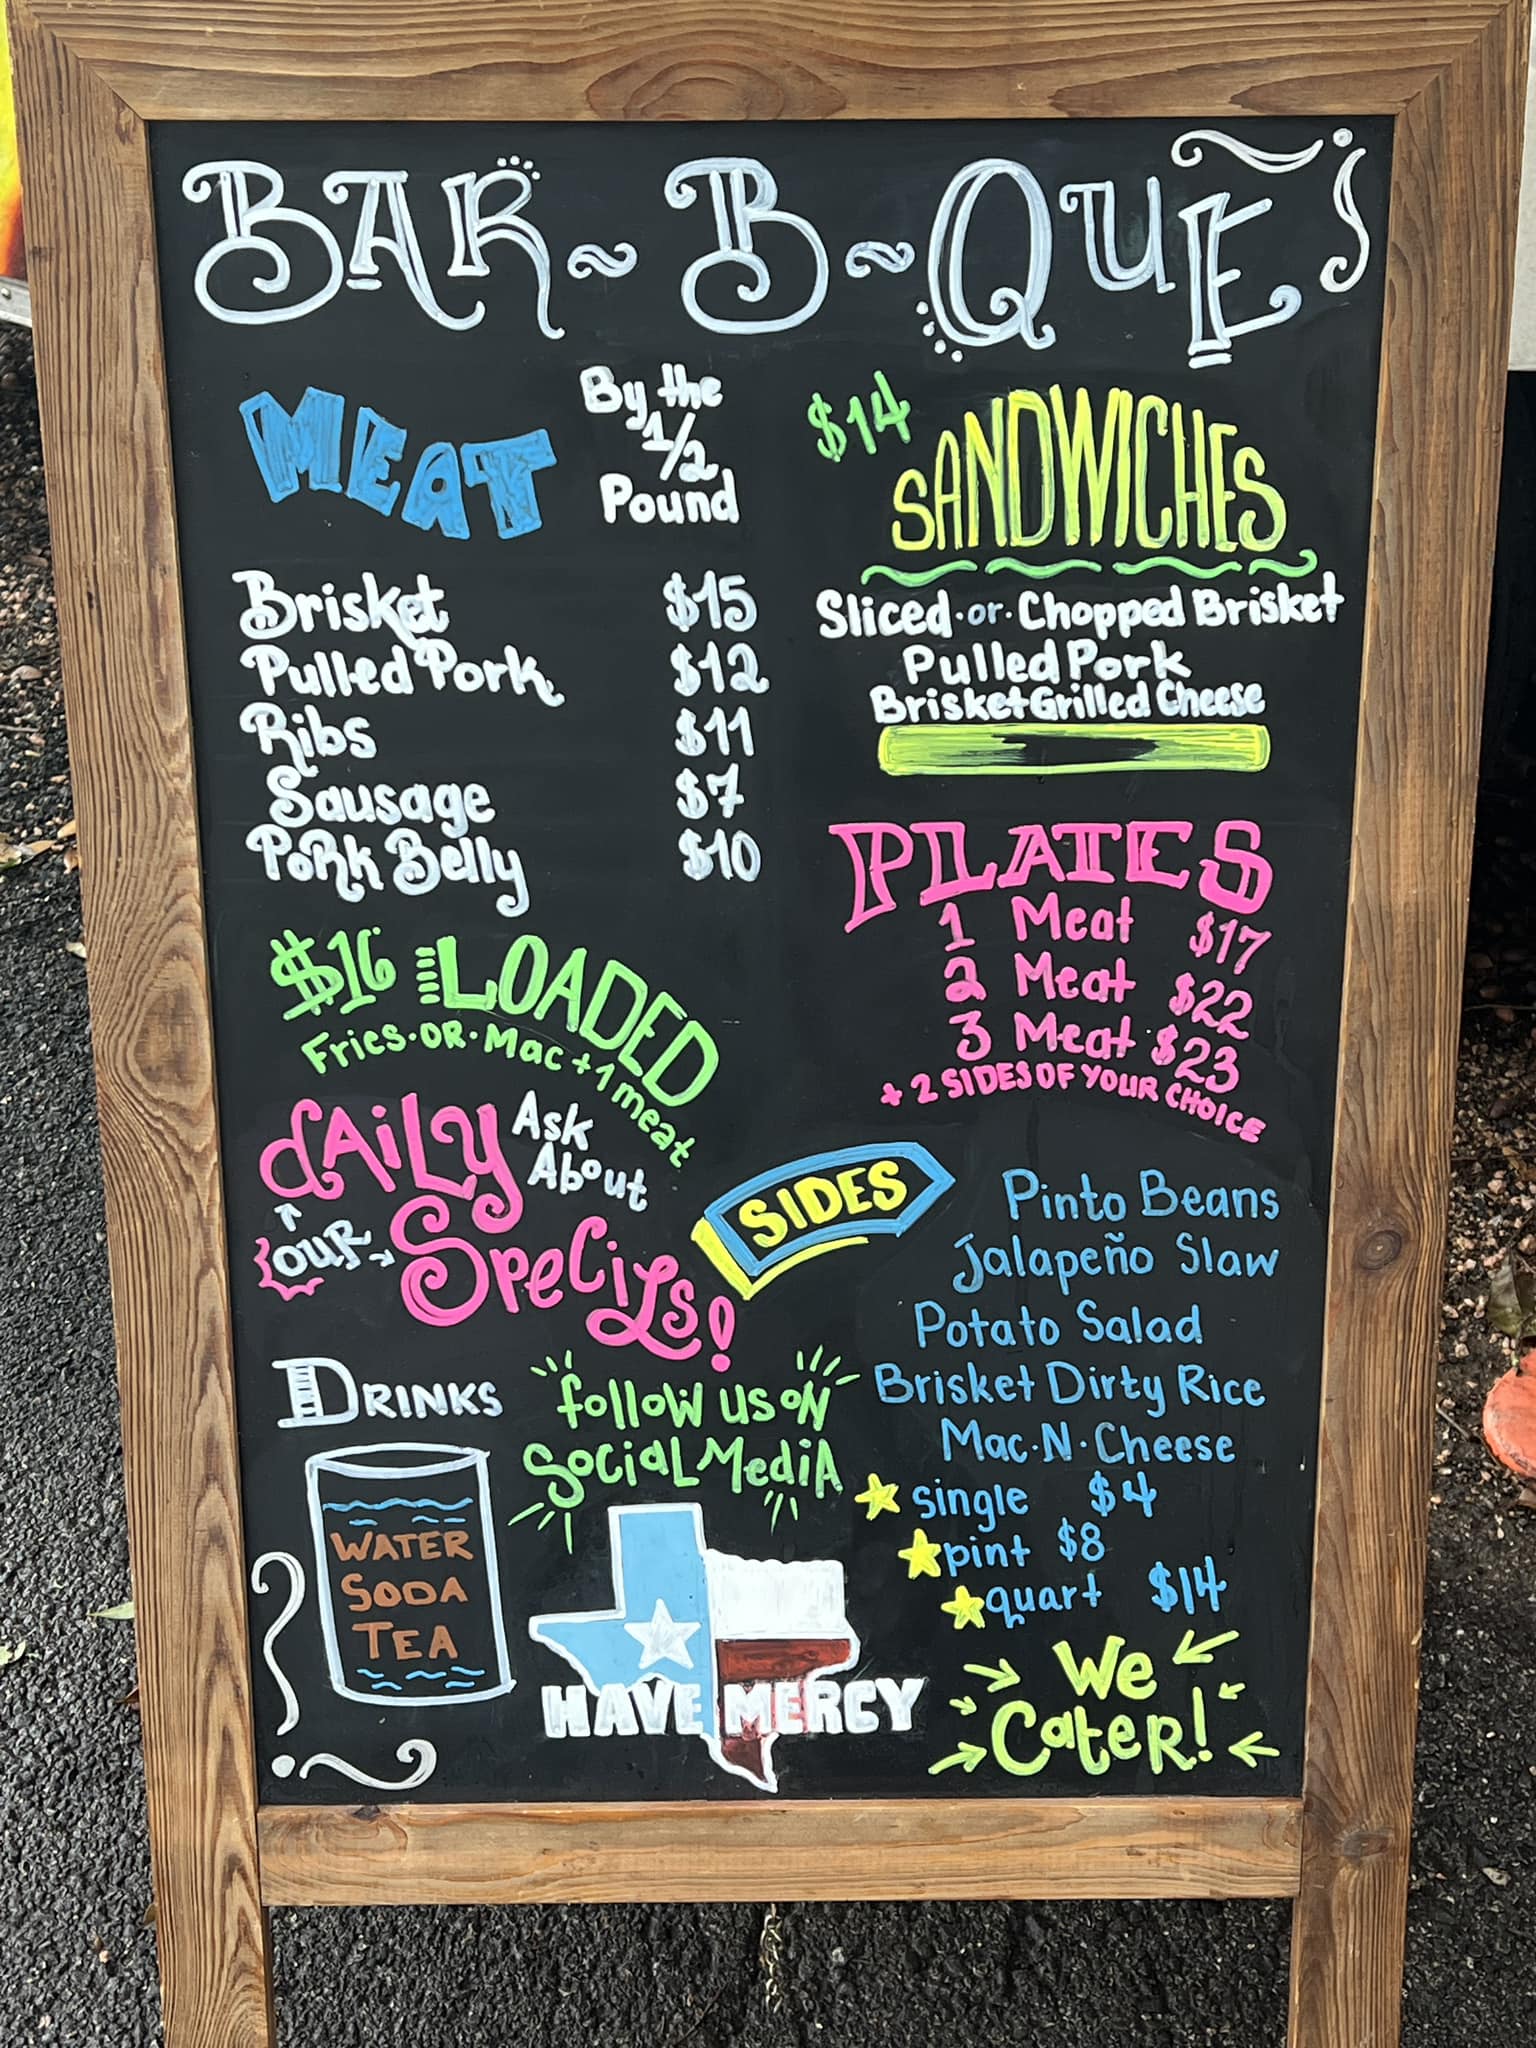 BAR-B-QUE
MEAT
By the
1/2
Pound
Brisket $15
Pulled Pork $12
Ribs $11
Sausage $7
PoRk Belly $10
$14
SANDWICHES
Sliced·or·Chopped Brisket
Pulled Pork
Brisket Grilled Cheese
PLATES
1 Meat $17
2 Meat $22
3 Meat $23
+ 2 SIDES OF YOUR CHOICE
$16 LOADED
Fries·OR·Mac + 1 meat
Ask
About
OUR
dAiLy
SpeciLs!
SIDES
Pinto Beans
Jalapeño Slaw
Potato Salad
Brisket Dirty Rice
Mac·N·Cheese
single $4
pint $8
quart $14
DRINKS
WATER
SODA
TEA
follow us oN
SociaL MediA
HAVE MERCY
We
CateR!